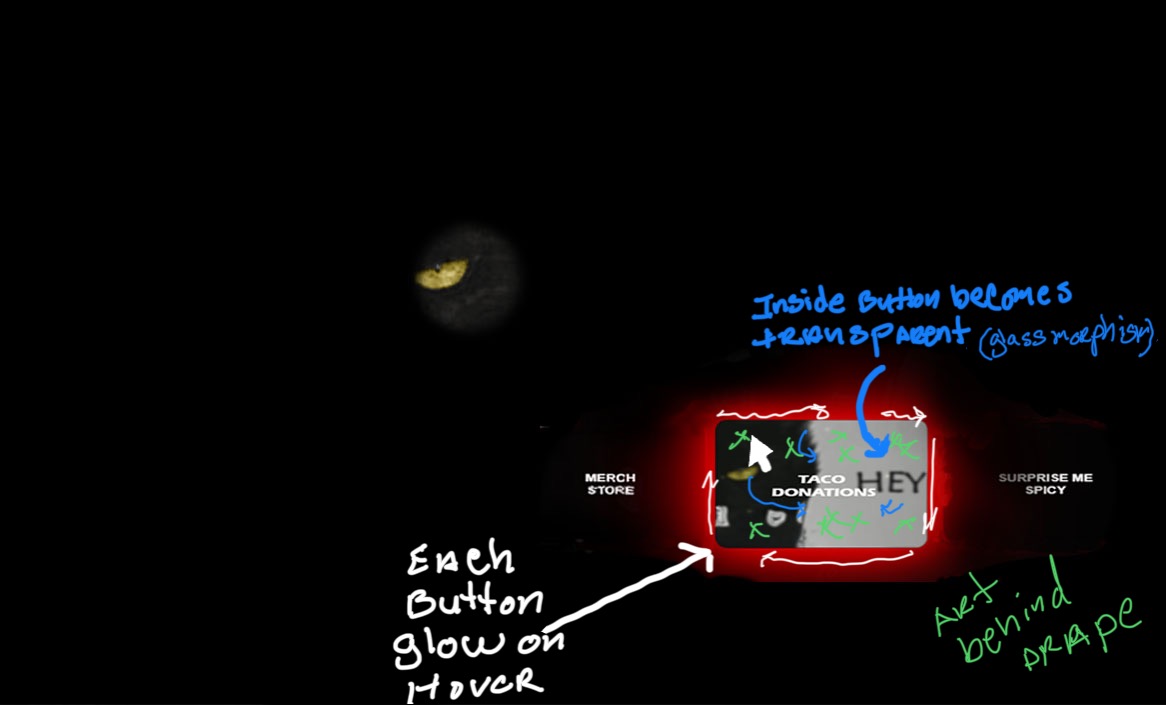 Inside Button becomes
transparent (glassmorphism)
HEY
MERCH
STORE
TACO
DONATIONS
SURPRISE ME
SPICY
Each
Button
glow on
Hover
Art
behind
Drape